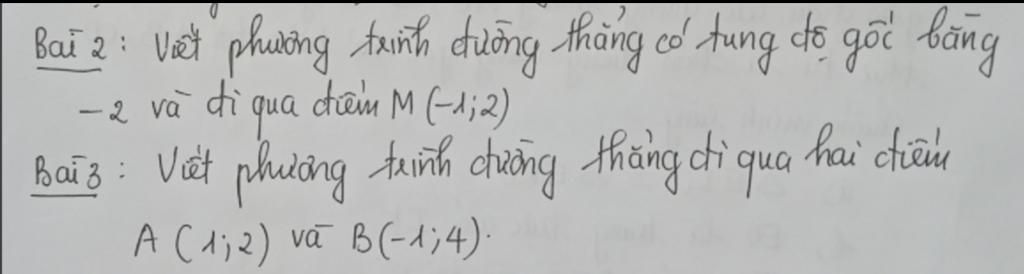 Bài 2: Viết phương trình đường thẳng có tung độ gốc bằng
-2 và đi qua điểm M (-1;2)
Bài 3: Viết phương trình đường thẳng đi qua hai điểm
A (1;2) và B(-1;4).